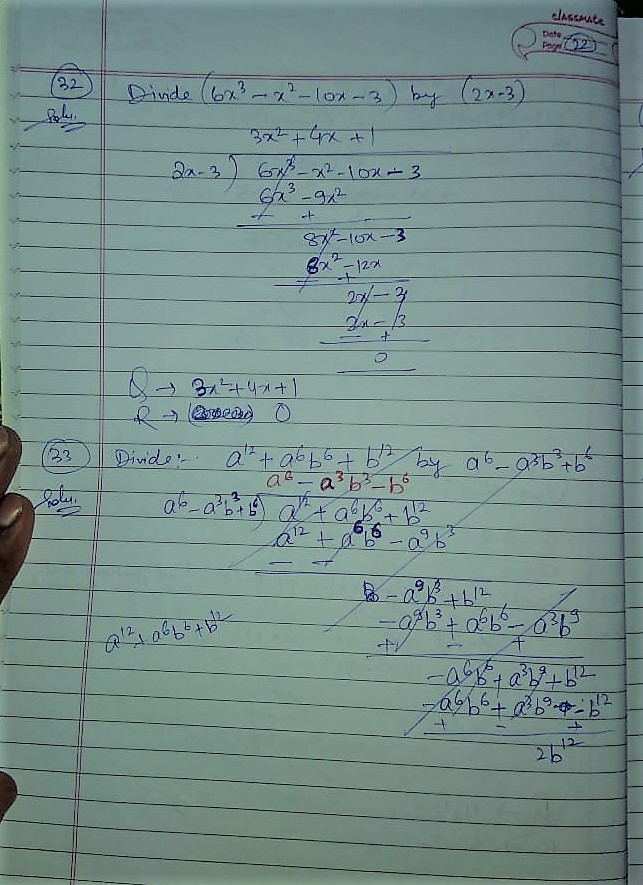 classmate
Date
Page 22
32 Divide (6x³ - x² - 10x - 3) by (2x-3)
Soln.
3x² + 4x + 1
2x-3 ) 6x³ - x² - 10x - 3
6x³ - 9x²
- +
8x² - 10x - 3
8x² - 12x
- +
2x - 3
2x - 3
- +
0
Q → 3x² + 4x + 1
R → 0
33 Divide:- a¹² + a⁶b⁶ + b¹² by a⁶ - a³b³ + b⁶
a⁶ - a³b³ - b⁶
Soln. a⁶ - a³b³ + b⁶ ) a¹² + a⁶b⁶ + b¹²
a¹² + a⁶b⁶ - a⁹b³
- -
- a⁹b³ + b¹²
a¹² + a⁶b⁶ + b¹²
- a⁹b³ + a⁶b⁶ - a³b⁹
+ - +
- a⁶b⁶ + a³b⁹ + b¹²
- a⁶b⁶ + a³b⁹ - b¹²
+ - +
2b¹²